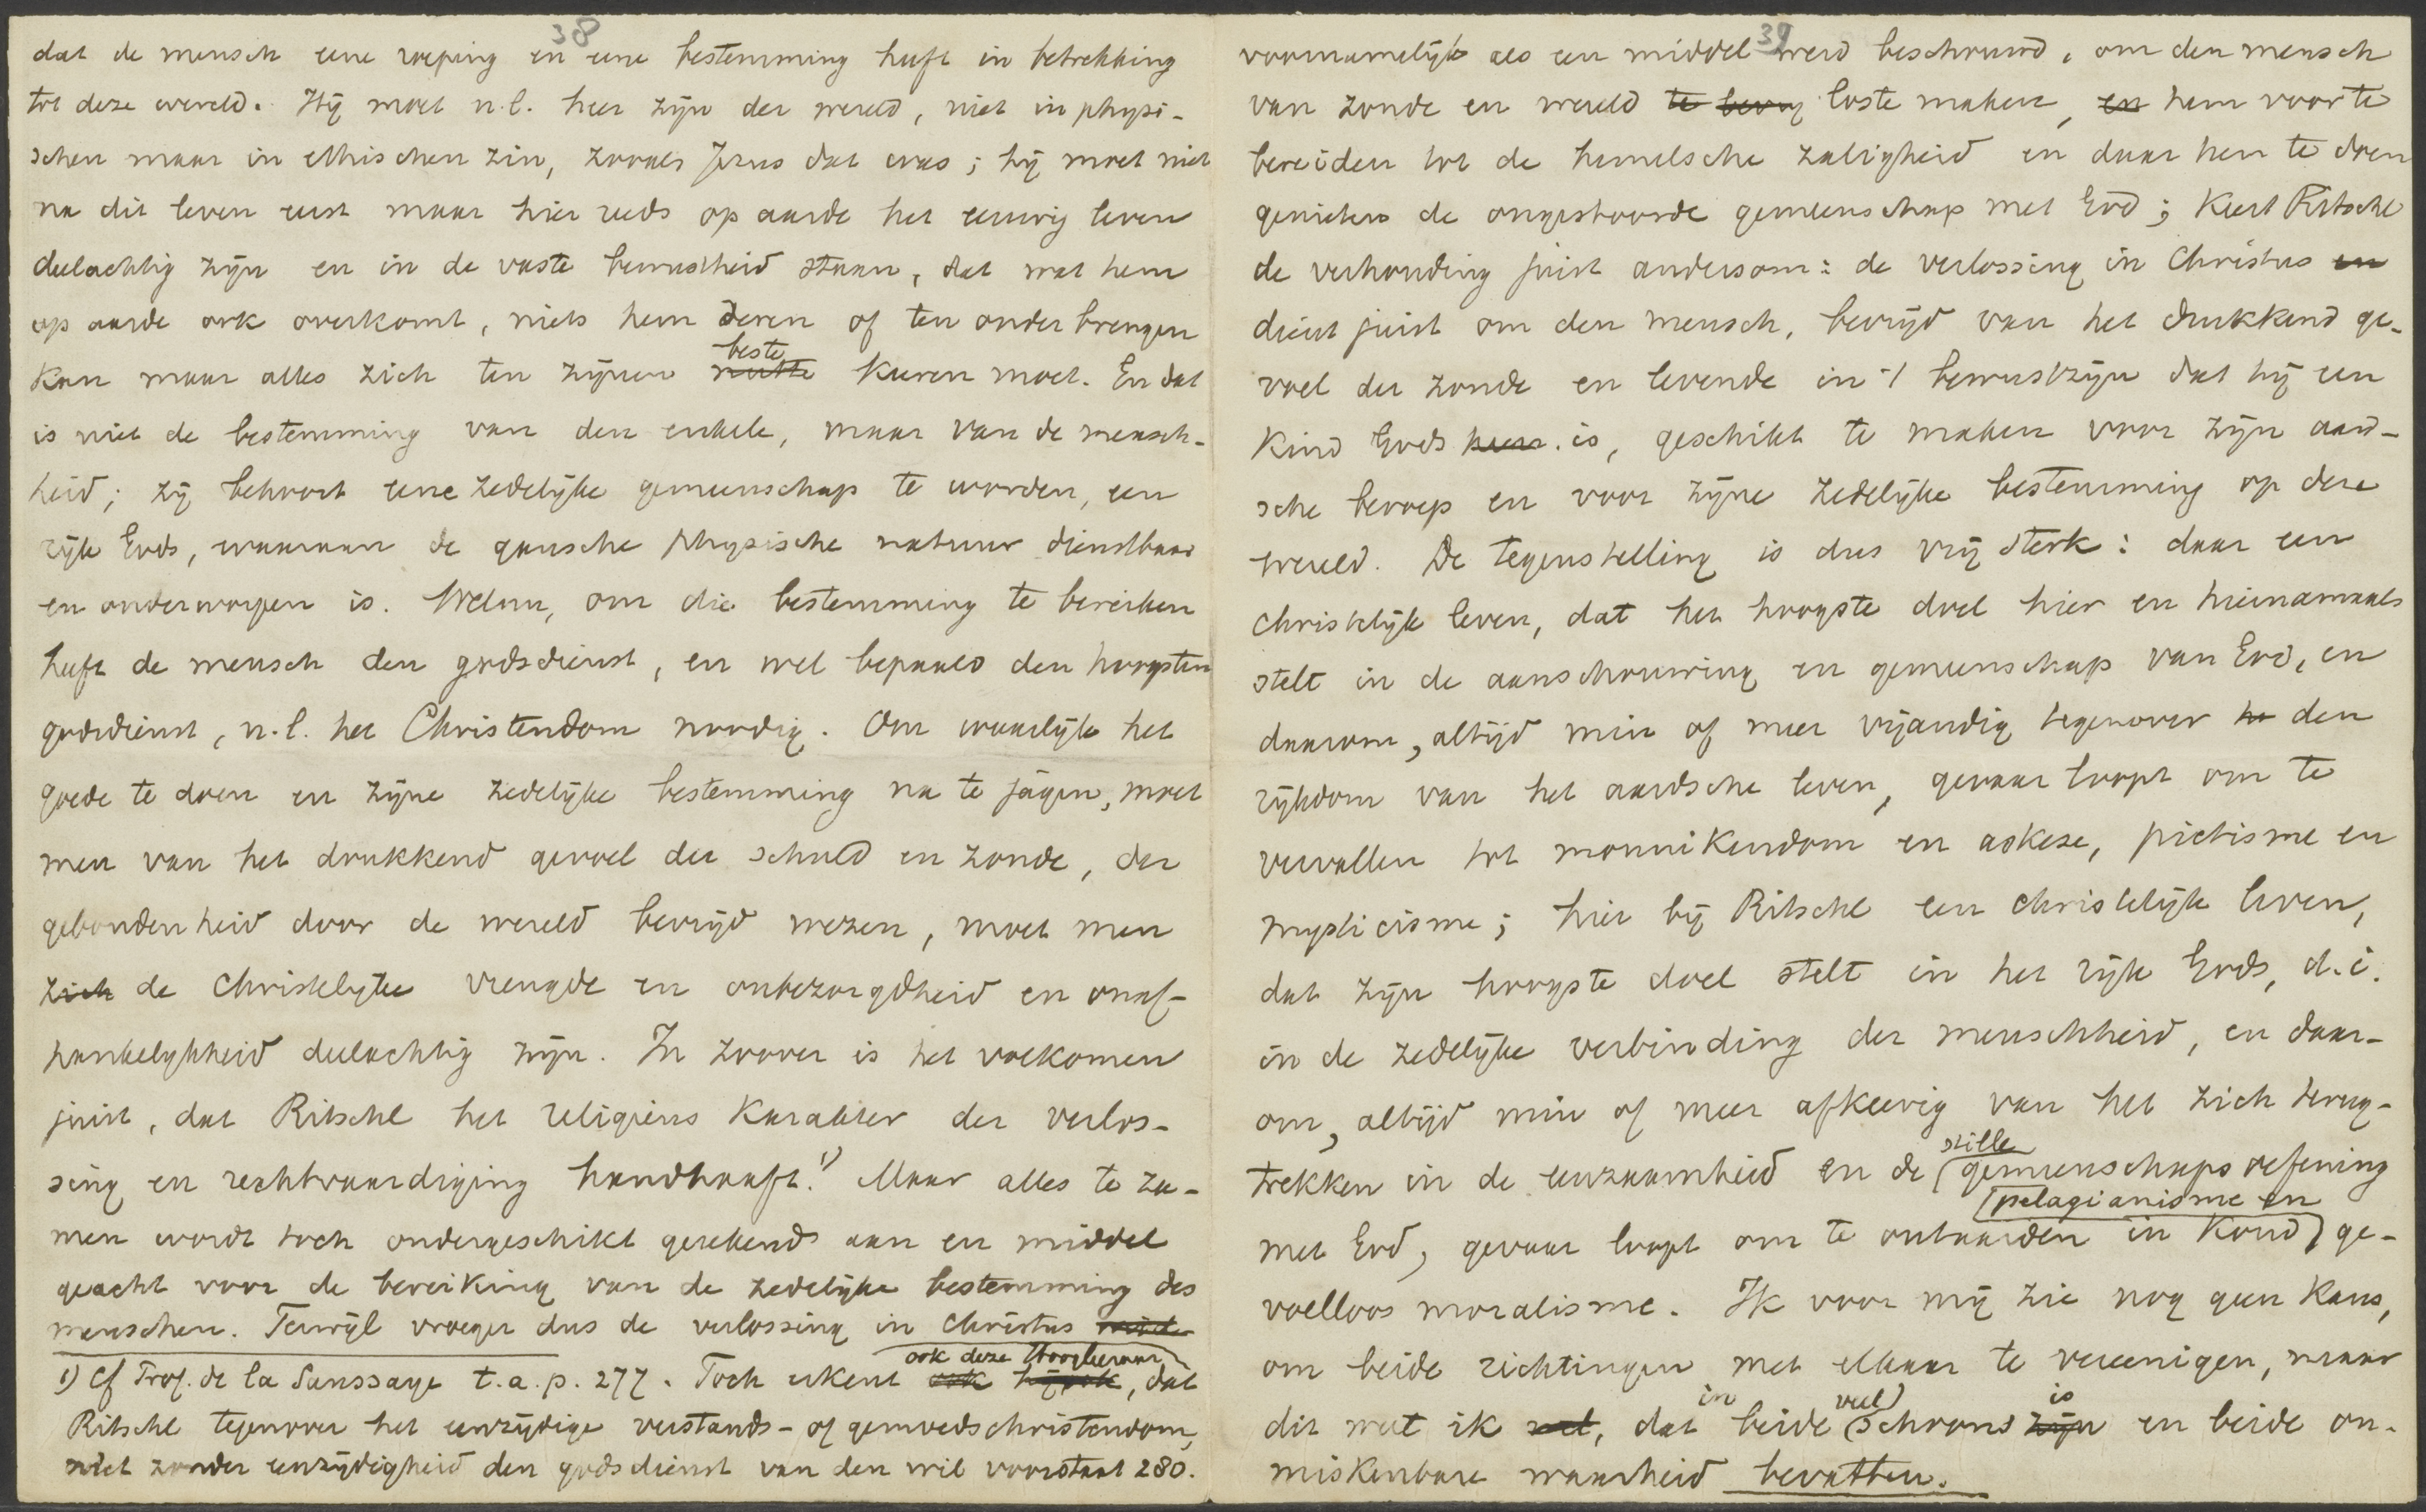 38
dat de mensch eene roeping en eene bestemming heeft in betrekking
tot deze wereld. Hij moet n.l. heer zijn der wereld, niet in physi-
schen maar in ethischen zin, zooals Jezus dat was; hij moet niet
na dit leven eerst maar hier reeds op aarde het eeuwig leven
deelachtig zijn en in de vaste bewustheid staan, dat wat hem
op aarde ook overkomt, niets hem deren of ten onder brengen
kan maar alles zich ten zijnen nutte beste keeren moet. En dat
is niet de bestemming van den enkele, maar van de mensch-
heid; zij behoort eene zedelijke gemeenschap te worden, een
rijk Gods, waaraan de gansche physische natuur dienstbaar
en onderworpen is. Welnu, om die bestemming te bereiken
heeft de mensch den godsdienst, en wel bepaald den hoogsten
godsdienst, n.l. het Christendom noodig. Om waarlijk het
goede te doen en zijne zedelijke bestemming na te jagen, moet
men van het drukkend gevoel der schuld en zonde, der
gebondenheid door de wereld bevrijd wezen, moet men
zich de christelijke vreugde en onbezorgdheid en onaf-
hankelijkheid deelachtig zijn. In zoover is het volkomen
juist, dat Ritschl het religieus karakter der verlos-
sing en rechtvaardiging handhaaft.1) Maar alles te za-
men wordt toch ondergeschikt gerekend aan en middel
geacht voor de bereiking van de zedelijke bestemming des
menschen. Terwijl vroeger dus de verlossing in Christus
1) Cf Prof. de la Saussaye t.a.p. 277. Toch erkent ook hij ook ook deze Hoogleeraar, dat
Ritschl tegenover het eenzijdige verstands- of gemoedschristendom,
niet zonder eenzijdigheid den godsdienst van den wil voorstaat 280.
39
voornamelijk als een middel werd beschouwd, om den mensch
van zonde en wereld te bevrij los te maken, en hem voor te
bereiden tot de hemelsche zaligheid en daar hen te doen
genieten de ongestoorde gemeenschap met God; keert Ritschl
de verhouding juist andersom: de verlossing in Christus en
dient juist om den mensch, bevrijd van het drukkend ge-
voel der zonde en levende in 't bewustzijn dat hij een
kind Gods is, geschikt te maken voor zijn aard-
sche beroep en voor zijne zedelijke bestemming op deze
wereld. De tegenstelling is dus vrij sterk: daar een
christelijk leven, dat het hoogste doel hier en hiernamaals
stelt in de aanschouwing en gemeenschap van God, en
daarom, altijd min of meer vijandig tegenover he den
rijkdom van het aardsche leven, gevaar loopt om te
vervallen tot monnikendom en askese, pietisme en
mysticisme; hier bij Ritschl een christelijk leven,
dat zijn hoogste doel stelt in het rijk Gods, d.i.
in de zedelijke verbinding der menschheid, en daar-
om, altijd min of meer afkeerig van het zich terug-
trekken in de eenzaamheid en de stille gemeenschapsoefening
met God, gevaar loopt om te ontaarden in pelagianisme en koud ge-
voelloos moralisme. Ik voor mij zie nog geen kans,
om beide richtingen met elkaar te vereenigen, maar
dit weet ik wel, dat in beide veel schoons zijn is en beide on-
miskenbare waarheid bevatten.